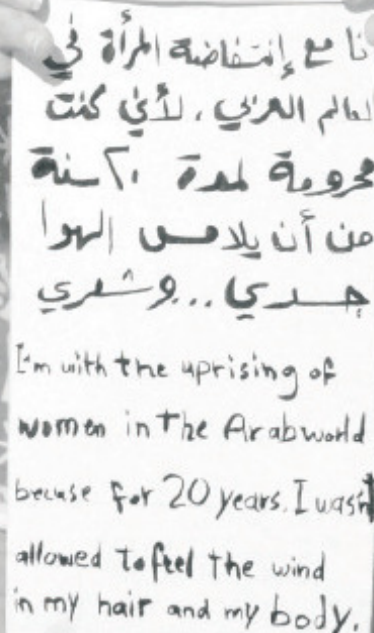 نا مع إنتفاضة المرأة في
لعالم العربي، لأني كنت
محرومة لمدة ٢٠ سنة
من أن يلامس الهوا
جسدي...وشعري
I'm with the uprising of
women in the Arab world
becuse for 20 years. I wasn't
allowed to feel the wind
in my hair and my body.